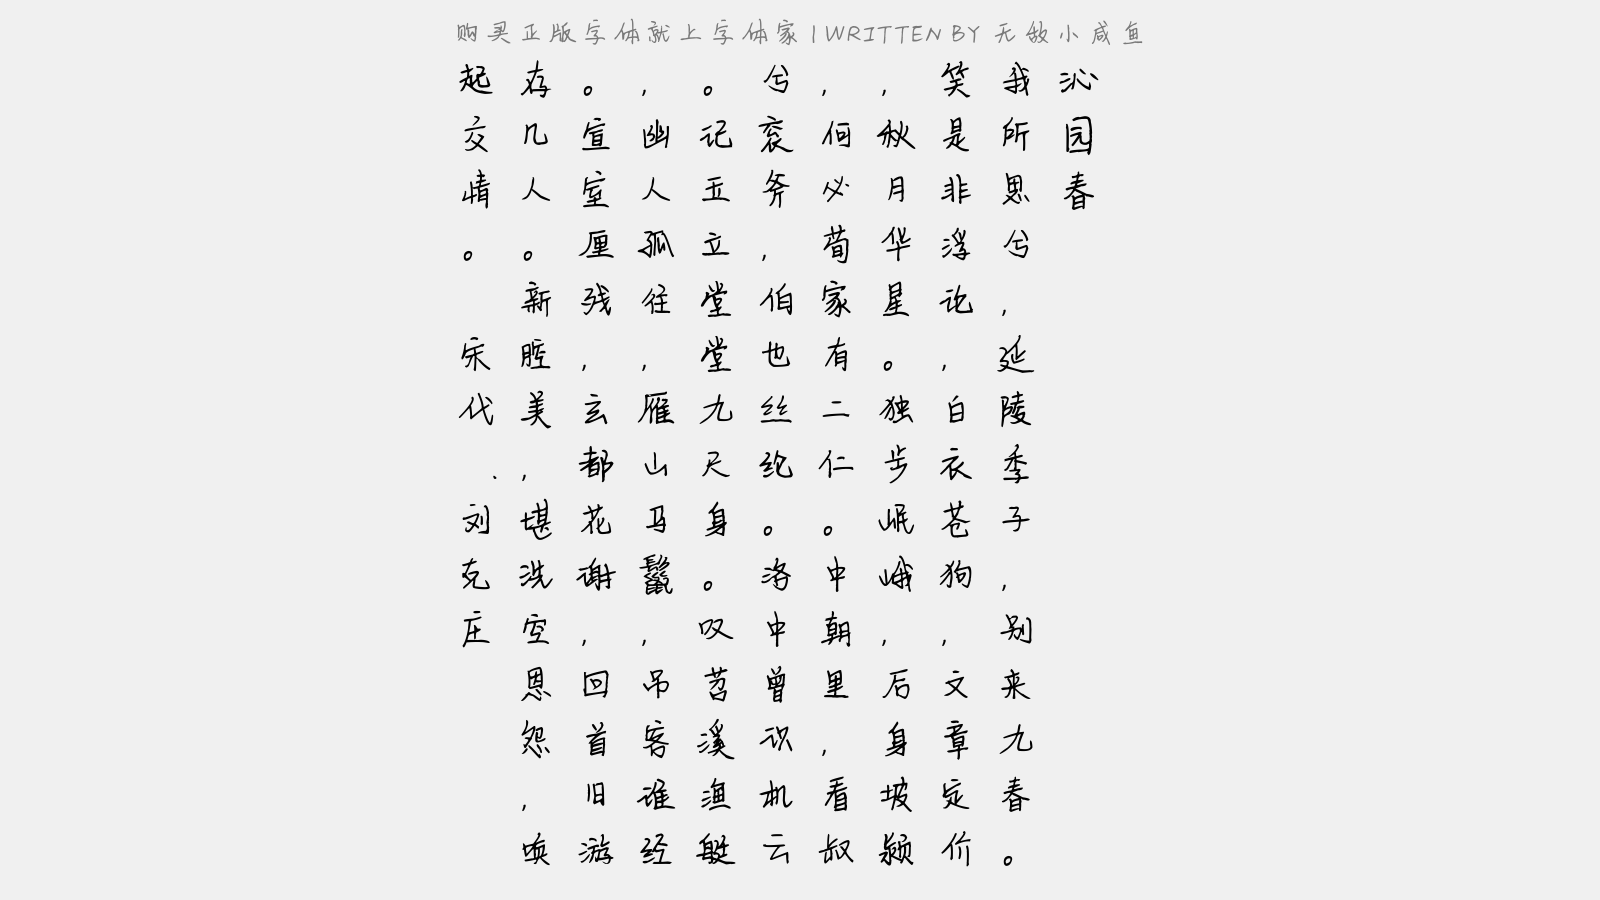 购买正版字体就上字体家 | WRITTEN BY 无敌小咸鱼
沁园春
我所思兮，延陵季子，别来九春。
笑是非浮论，白衣苍狗，文章定价
，秋月华星。独步岷峨，后身坡颍
，何必荀家有二仁。中朝里，看叔
兮衮斧，伯也丝纶。洛中曾识机云
。记玉立堂堂九尺身。叹苕溪渔艇
，幽人孤往，雁山马鬣，吊客谁经
。宣室厘残，玄都花谢，回首旧游
存几人。新腔美，堪洗空恩怨，唤
起交情。 宋代 · 刘克庄